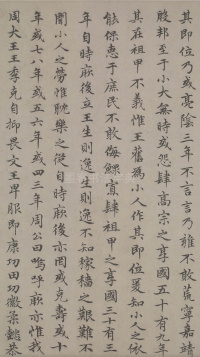 其即位乃或亮陰三年不言言乃雍不敢荒寧嘉靖
殷邦至于小大無時或怨肆高宗之享國五十有九年
其在祖甲不義惟王舊為小人作其即位爰知小人之依
能保惠于庶民不敢侮鰥寡肆祖甲之享國三十有三
年自時厥後立王生則逸生則逸不知稼穡之艱難不
聞小人之勞惟耽樂之從自時厥後亦罔或克壽或十
年或七八年或五六年或四三年周公曰嗚呼厥亦惟我
周大王王季克自抑畏文王卑服即康功田功徽柔懿恭